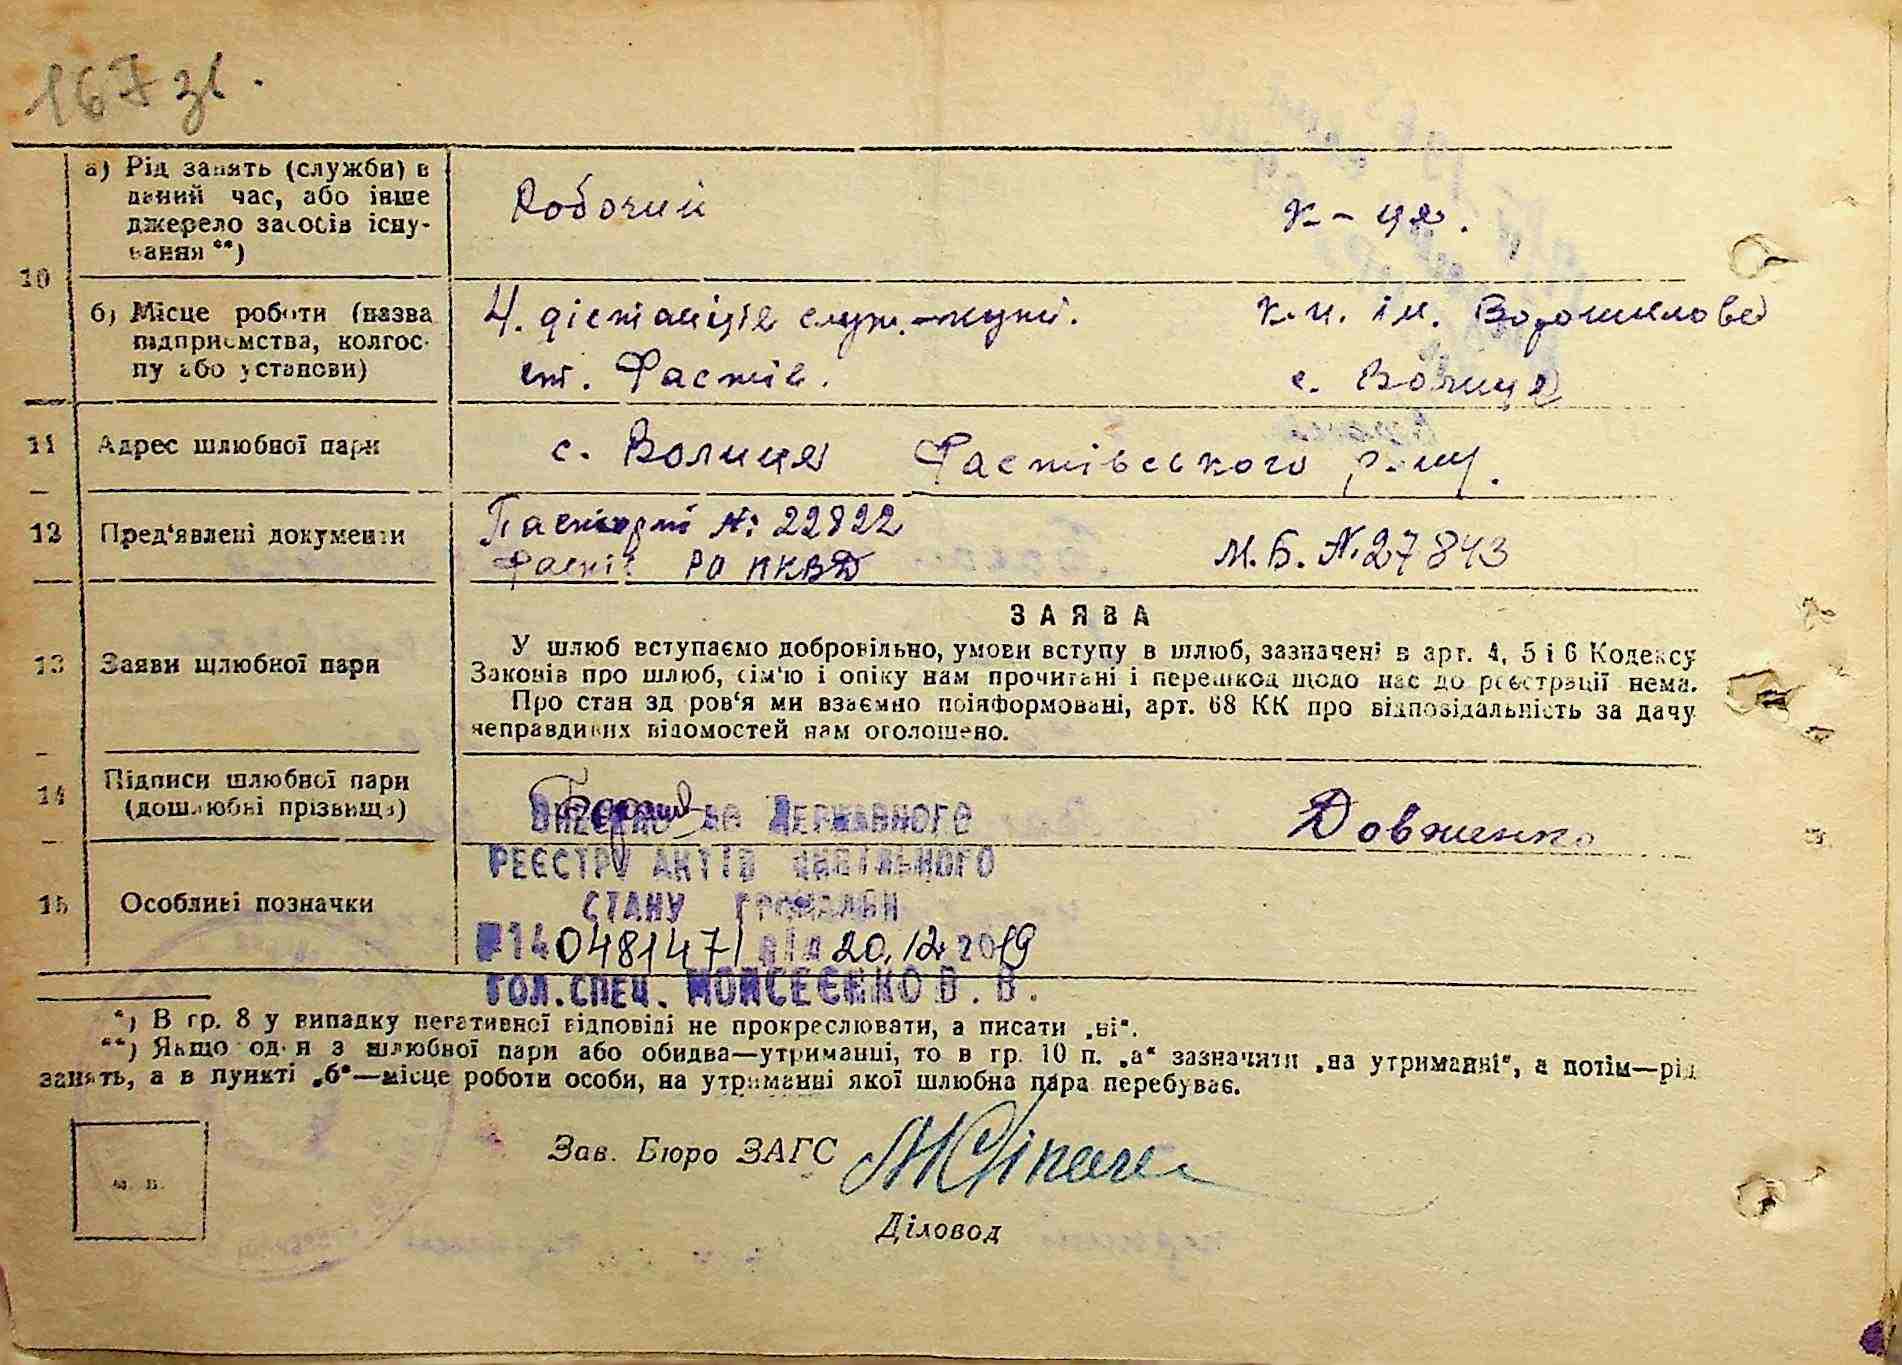 167 зв.
10
а) Рід занять (служби) в
даний час, або інше
джерело засобів існу-
вання **)
Робочий
к-ця.
б) Місце роботи (назва
підприємства, колгос-
пу або установи)
4. дістанція служ. путі.
ст. Фастів.
к-п. ім. Ворошилова
с. Волиця
11
Адрес шлюбної пари
с. Волиця Фастівського р-ну.
12
Пред'явлені документи
Паспорт №: 22822
Фастів. РО НКВД
М.Б. №27843
13
Заяви шлюбної пари
ЗАЯВА
У шлюб вступаємо добровільно, умови вступу в шлюб, зазначені в арт. 4, 5 і 6 Кодексу
Законів про шлюб, сім'ю і опіку нам прочитані і перешкод щодо нас до реєстрації нема.
Про стан здоров'я ми взаємно поінформовані, арт. 68 КК про відповідальність за дачу
неправдивих відомостей нам оголошено.
14
Підписи шлюбної пари
(дошлюбні прізвища)
Довженко
ВНЕСЕНО ДО ДЕРЖАВНОГО
РЕЄСТРУ АКТІВ ЦИВІЛЬНОГО
СТАНУ ГРОМАДЯН
15
Особливі позначки
№140481471 від 20.12.2019
ГОЛ.СПЕЦ. МОИСЕЄНКО В.В.
*) В гр. 8 у випадку негативної відповіді не прокреслювати, а писати „ні“.
**) Якщо один з шлюбної пари або обидва—утриманці, то в гр. 10 п. „а“ зазначити „на утриманні“, а потім—рід
занять, а в пункті „б“—місце роботи особи, на утриманні якої шлюбна пара перебуває.
Зав. Бюро ЗАГС
Діловод
м. п.